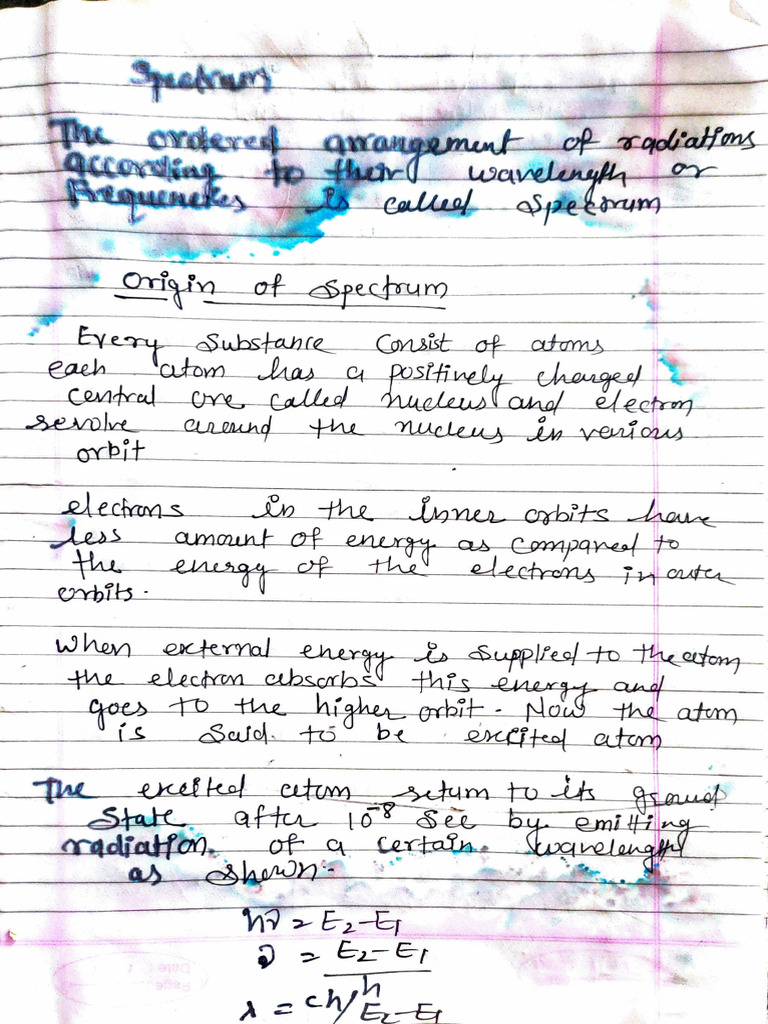 Spectrum
The ordered arrangement of radiations
according to their wavelength or
Frequencies is called Spectrum
Origin of Spectrum
Every Substance Consist of atoms
each atom has a positively charged
central ore called nucleus and electron
revolve around the nucleus in various
orbit
electrons in the inner orbits have
less amount of energy as compared to
the energy of the electrons in outer
orbits.
When external energy is supplied to the atom
the electron absorbs this energy and
goes to the higher orbit. Now the atom
is said to be excited atom
The excited atom return to its ground
State after 10⁻⁸ Sec by emitting
radiation of a certain wavelength
as shown.
hν = E₂-E₁
ν = E₂-E₁/h
λ = ch/E₂-E₁